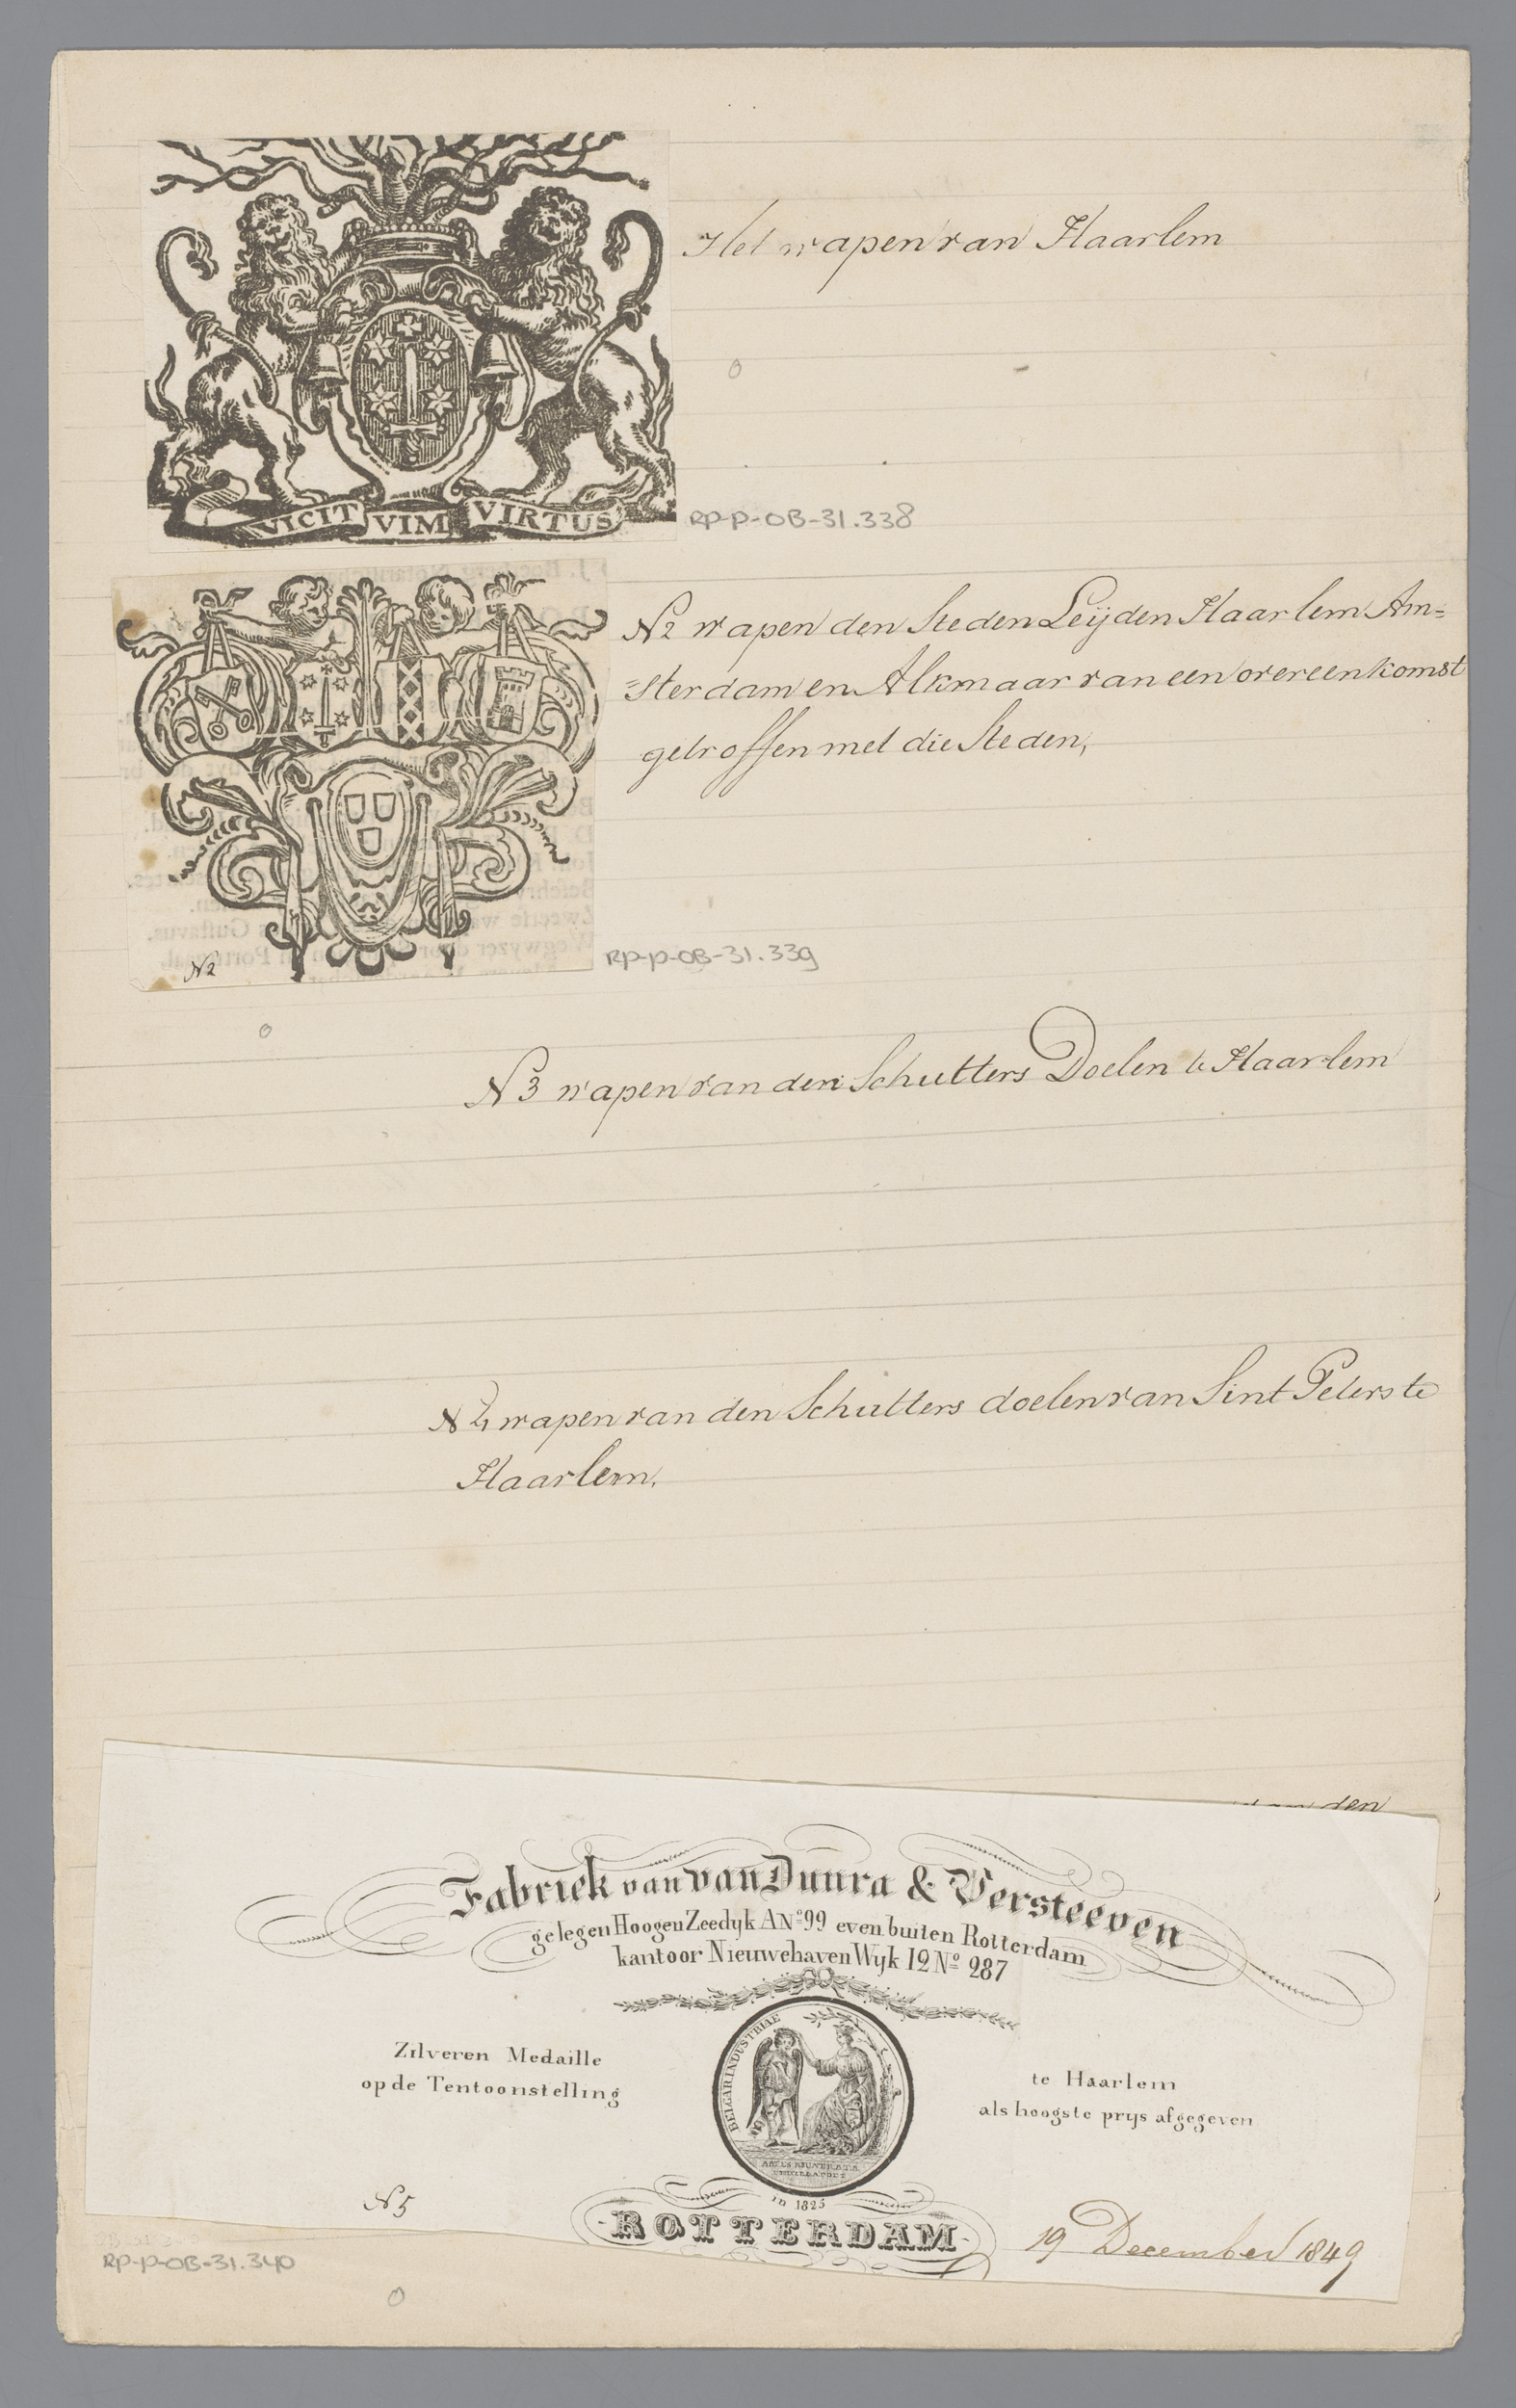 Het wapen van Haarlem
VICIT VIM VIRTUS
RP-P-OB-31.338
N2 wapen den Steden Leijden Haarlem Am=
=sterdam en Alkmaar van een overeenkomst
getroffen met die Steden,
N2
RP-P-OB-31.339
N3 wapen van den Schutters Doelen te Haarlem
N4 wapen van den Schutters doelen van Sint Peters te
Haarlem.
den
Fabriek van van Duura & Versteeven
gelegen Hoogen Zeedyk A Nº 99 even buiten Rotterdam
kantoor Nieuwehaven Wyk 12 Nº 287
Zilveren Medaille
op de Tentoonstelling
BELGAR INDUSTRIAE
te Haarlem
als hoogste prys afgegeven
in 1825
N5
ROTTERDAM
19 December 1849
RP-P-OB-31.340